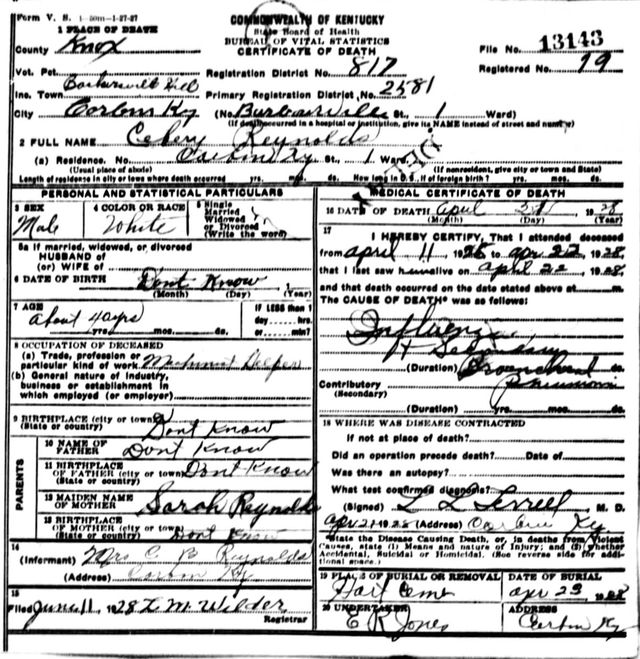 Form V. S. 1-50m-1-27-27
COMMONWEALTH OF KENTUCKY
State Board of Health
BUREAU OF VITAL STATISTICS
CERTIFICATE OF DEATH
1 PLACE OF DEATH
County Knox
File No. 13143
Registered No. 79
Vot. Pct.
Registration District No. 817
Inc. Town
Primary Registration District No. 2581
City Corbin Ky (No. Barbourville St., 1 Ward)
(If death occurred in a hospital or institution, give its NAME instead of street and number)
2 FULL NAME Celery Reynolds
(a) Residence. No. Corbin Ky St., 1 Ward.
(Usual place of abode) (If nonresident, give city or town and State)
Length of residence in city or town where death occurred yrs. mos. ds. How long in U. S., if of foreign birth? yrs. mos. ds.
PERSONAL AND STATISTICAL PARTICULARS
3 SEX Male
4 COLOR OR RACE White
5 Single
Married
Widowed
or Divorced
(Write the word)
5a If married, widowed, or divorced
HUSBAND of
(or) WIFE of
6 DATE OF BIRTH Dont Know 1
(Month) (Day) (Year)
7 AGE
About 40 yrs
yrs. mos. ds.
IF LESS than 1
day hrs.
or min?
8 OCCUPATION OF DECEASED
(a) Trade, profession or
particular kind of work
(b) General nature of industry,
business or establishment in
which employed (or employer)
9 BIRTHPLACE (city or town)
(State or country) Dont Know
PARENTS
10 NAME OF
FATHER Dont Know
11 BIRTHPLACE
OF FATHER (city or town) Dont Know
(State or country)
12 MAIDEN NAME
OF MOTHER Sarah Reynolds
13 BIRTHPLACE
OF MOTHER (city or town)
(State or country) Dont Know
14
(Informant) Mrs C B Reynolds
(Address) Corbin Ky
15
Filed June 11 1928 L M Wilder
Registrar
MEDICAL CERTIFICATE OF DEATH
16 DATE OF DEATH April 1928
(Month) (Day) (Year)
17
I HEREBY CERTIFY, That I attended deceased
from April 11, 1928 to apr 22, 1928
that I last saw h alive on april 22, 1928
and that death occurred on the date stated above at m.
The CAUSE OF DEATH* was as follows:
Influenza
Secondary
(Duration) Bronchial
Contributory Pneumonia
(Secondary)
(Duration) yrs. mos. ds.
18 WHERE WAS DISEASE CONTRACTED
If not at place of death?
Did an operation precede death? Date of
Was there an autopsy?
What test confirmed diagnosis?
(Signed) L L Terrell M. D.
Apr 21 1928 (Address) Corbin Ky
*State the Disease Causing Death, or, in deaths from Violent
Causes, state (1) Means and nature of Injury; and (2) whether
Accidental, Suicidal or Homicidal. (See reverse side for additional
space.)
19 PLACE OF BURIAL OR REMOVAL
Hart Cem
DATE OF BURIAL
apr 23 1928
20 UNDERTAKER
E R Jones
ADDRESS
Corbin Ky